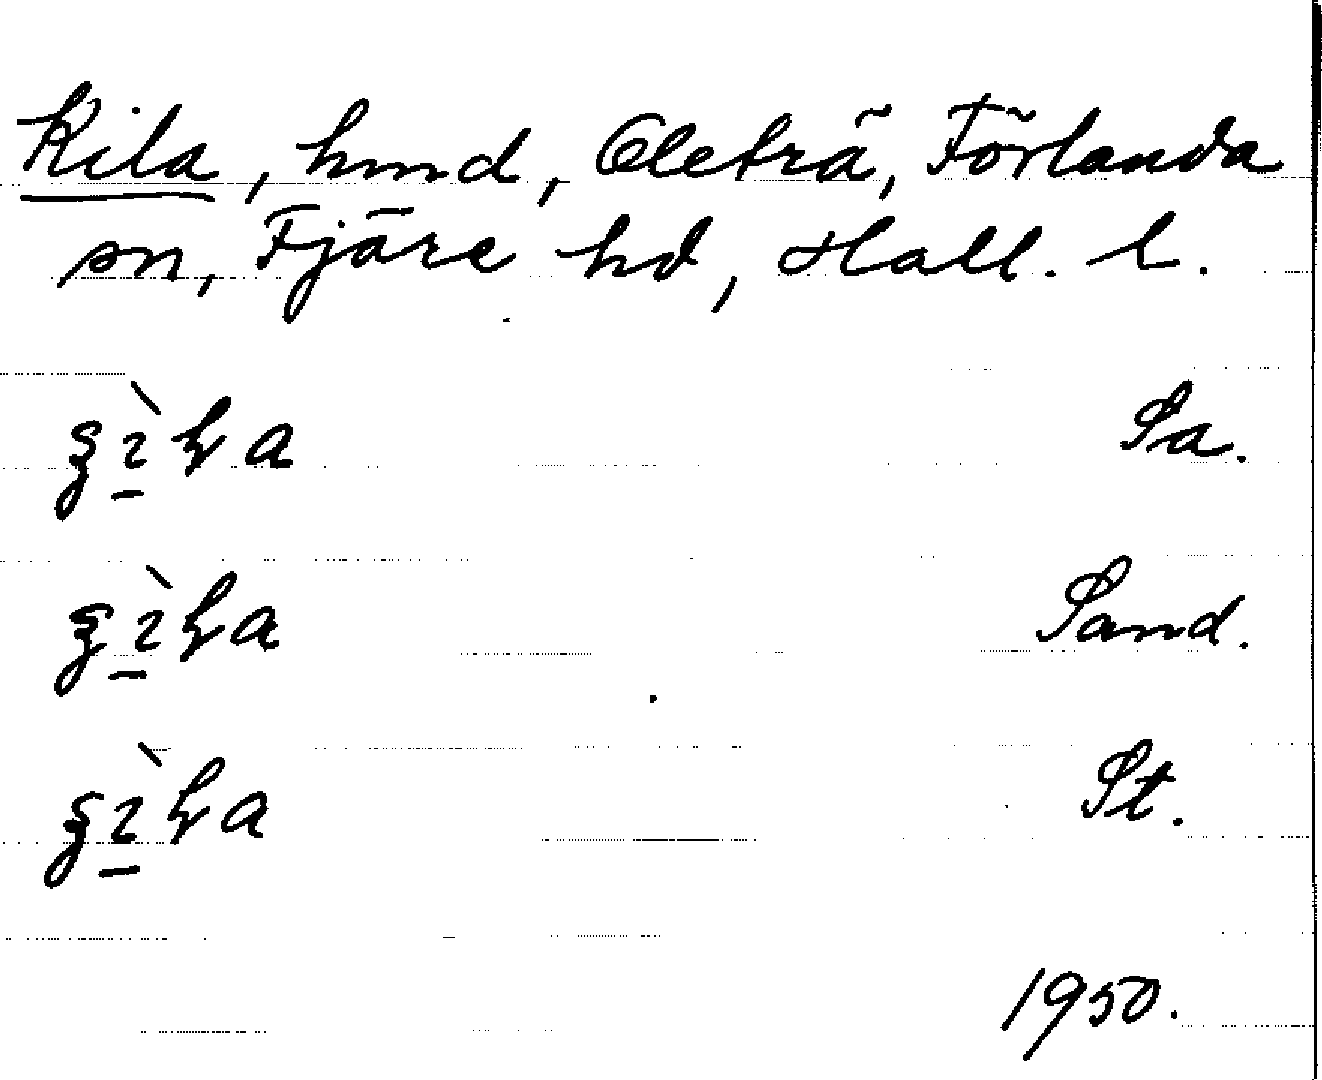 Kila, hmd, Oleträ, Förlanda
sn, Fjäre hd, Hall. l.
Sa.
Sand.
St.
1950.